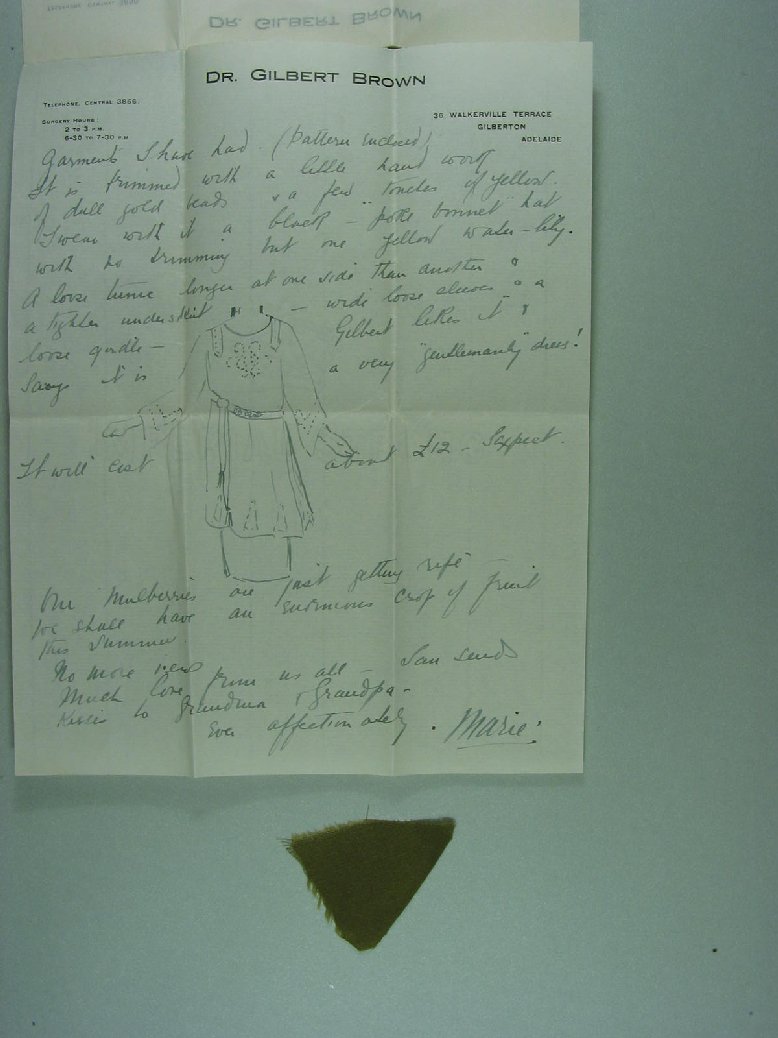 DR. GILBERT BROWN
TELEPHONE, CENTRAL 3856.
SURGERY HOURS:
2 TO 3 P.M.
6-30 TO 7-30 P.M.
36, WALKERVILLE TERRACE
GILBERTON
ADELAIDE
garments I have had (pattern enclosed)
It is trimmed with a little hand work
of dull gold beads & a few touches of yellow.
I wear with it a black - poke bonnet hat
with no trimming but one yellow water-lily.
A loose tunic longer at one side than another &
a tighter underskirt - wide loose sleeves & a
loose girdle - Gilbert likes it &
Says it is a very "gentlemanly" dress!
It will cost about £12 - I expect.
Our Mulberries are just getting ripe
We shall have an enormous crop of fruit
this summer.
No more news from us all - Ian sends
Much love
kisses to Grandma & Grandpa.
Ever affectionately. Marie.